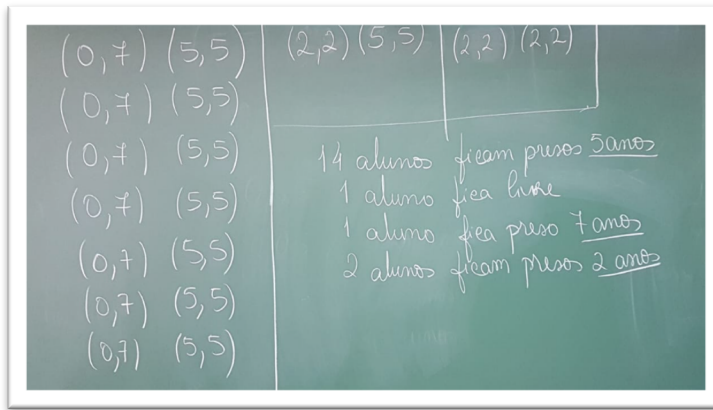 (0,7) (5,5)
(0,7) (5,5)
(0,7) (5,5)
(0,7) (5,5)
(0,7) (5,5)
(0,7) (5,5)
(0,7) (5,5)
(2,2) (5,5) (2,2) (2,2)
14 alunos ficam presos 5 anos
1 aluno fica livre
1 aluno fica preso 7 anos
2 alunos ficam presos 2 anos